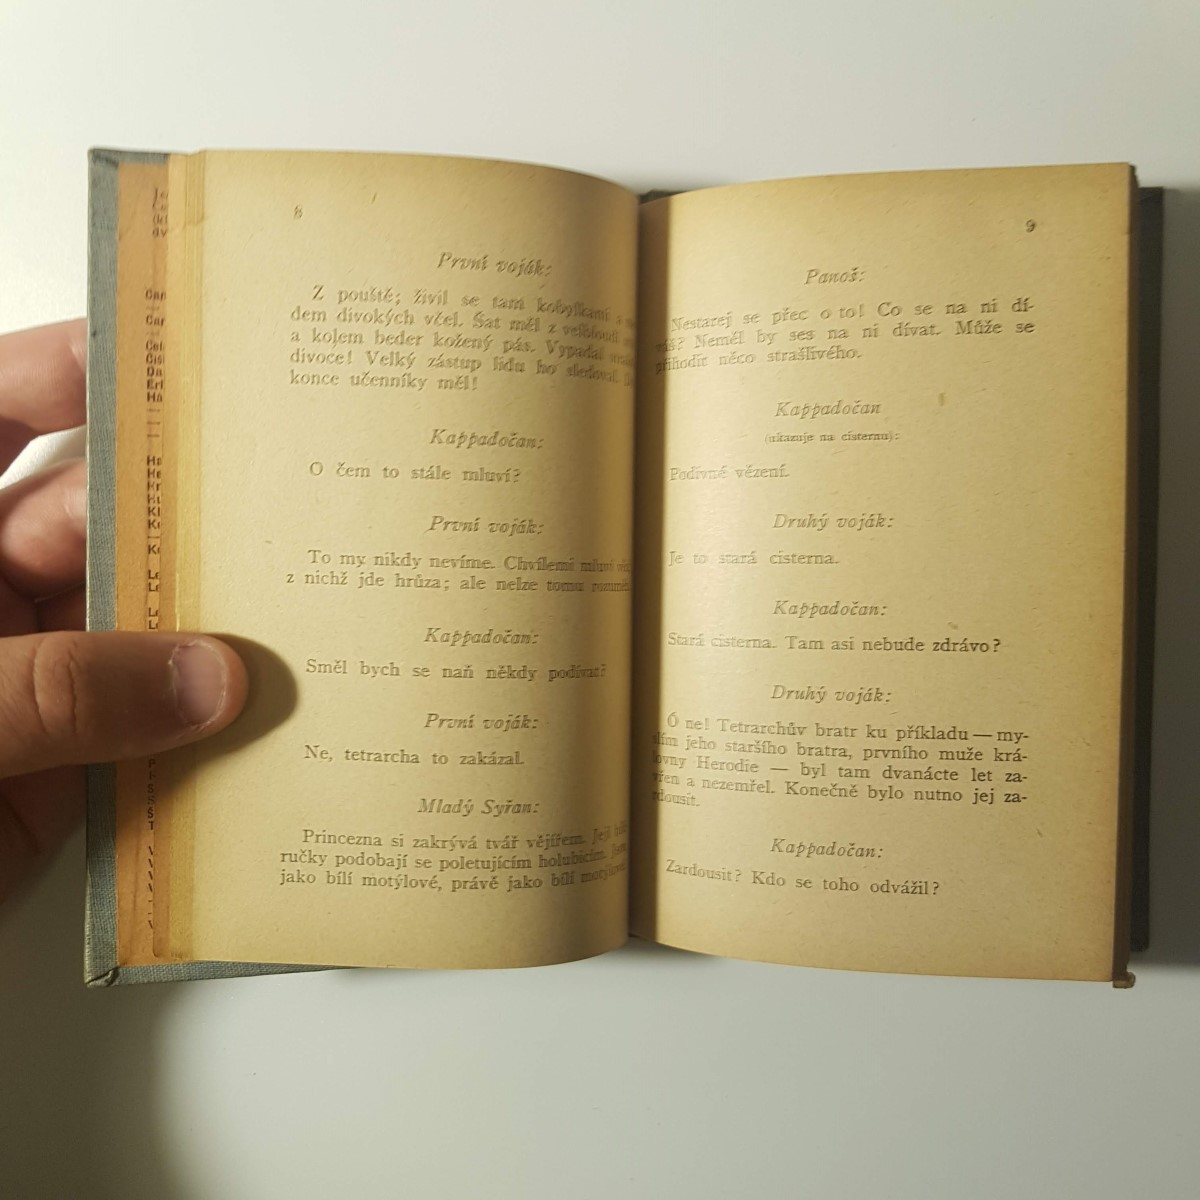 8
První voják:
Z pouště; živil se tam kobylkami a
dem divokých včel. Šat měl z velbloudí
a kolem beder kožený pás. Vypadal
divoce! Velký zástup lidu ho sledoval.
konce učenníky měl!
Kappadočan:
O čem to stále mluví?
První voják:
To my nikdy nevíme. Chvílemi mluví
z nichž jde hrůza; ale nelze tomu
Kappadočan:
Směl bych se naň někdy podívat?
První voják:
Ne, tetrarcha to zakázal.
Mladý Syřan:
Princezna si zakrývá tvář vějířem. Její
ručky podobají se poletujícím holubicím.
jako bílí motýlové, právě jako bílí
9
Panoš:
Nestarej se přec o to! Co se na ni dí-
váš? Neměl by ses na ni dívat. Může se
přihodit něco strašlivého.
Kappadočan
(ukazuje na cisternu):
Podivné vězení.
Druhý voják:
Je to stará cisterna.
Kappadočan:
Stará cisterna. Tam asi nebude zdrávo?
Druhý voják:
Ó ne! Tetrarchův bratr ku příkladu — my-
slím jeho staršího bratra, prvního muže krá-
lovny Herodie — byl tam dvanácte let za-
vřen a nezemřel. Konečně bylo nutno jej za-
rdousit.
Kappadočan:
Zardousit? Kdo se toho odvážil?